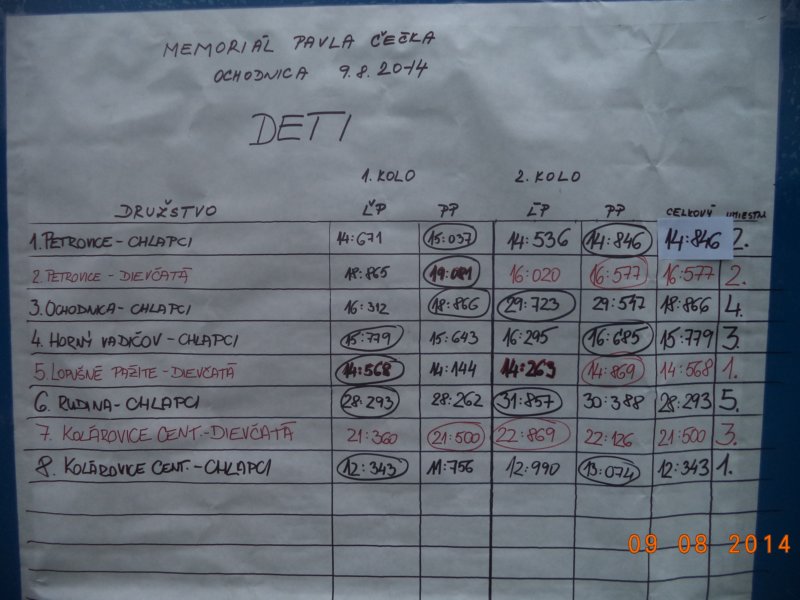 MEMORIÁL PAVLA ČEČKA
OCHODNICA 9.8.2014
DETI
1. KOLO 2. KOLO
DRUŽSTVO ĽP PP ĽP PP CELKOVÝ UMIESTN.
1. PETROVICE - CHLAPCI 14:671 15:037 14:536 14:846 14:846 2.
2. PETROVICE - DIEVČATÁ 18:865 19:081 16:020 16:577 16:577 2.
3. OCHODNICA - CHLAPCI 16:312 18:866 29:723 29:517 18:866 4.
4. HORNÝ VADIČOV - CHLAPCI 15:779 15:643 16:295 16:685 15:779 3.
5. LOPUŠNÉ PAŽITE - DIEVČATÁ 14:568 14:144 14:263 14:869 14:568 1.
6. RUDINA - CHLAPCI 28:293 28:262 31:857 30:388 28:293 5.
7. KOLÁROVICE CENT. - DIEVČATÁ 21:360 21:500 22:869 22:126 21:500 3.
8. KOLÁROVICE CENT. - CHLAPCI 12:343 11:756 12:990 13:074 12:343 1.
09 08 2014